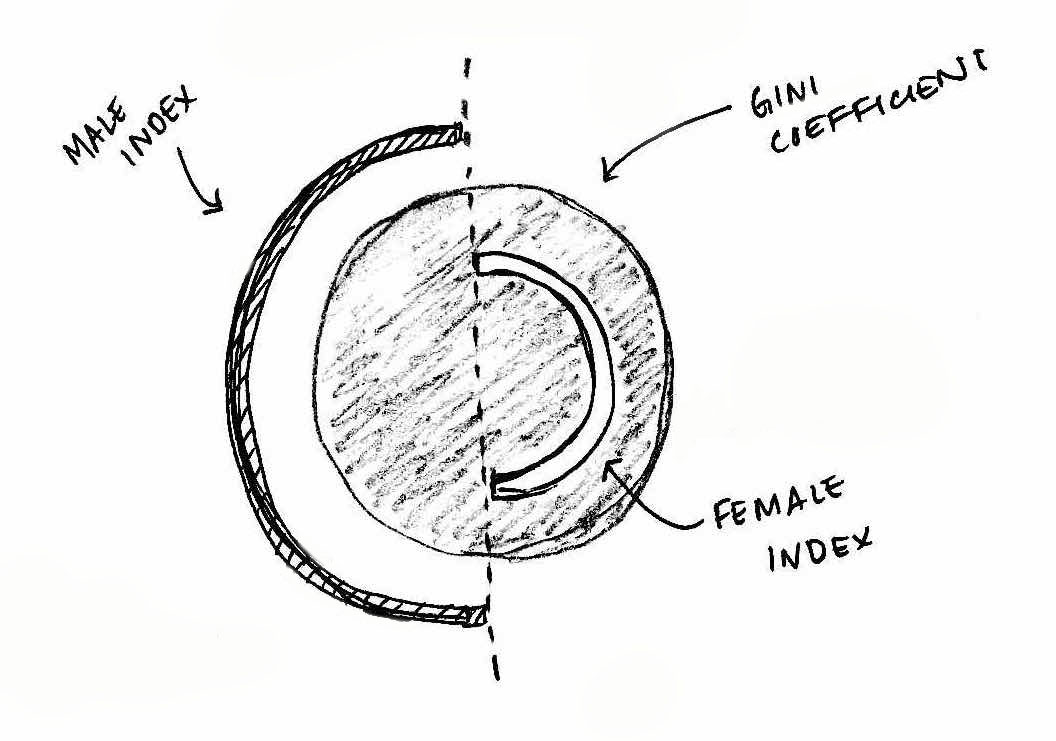 MALE
INDEX
GINI
COEFFICIENT
FEMALE
INDEX